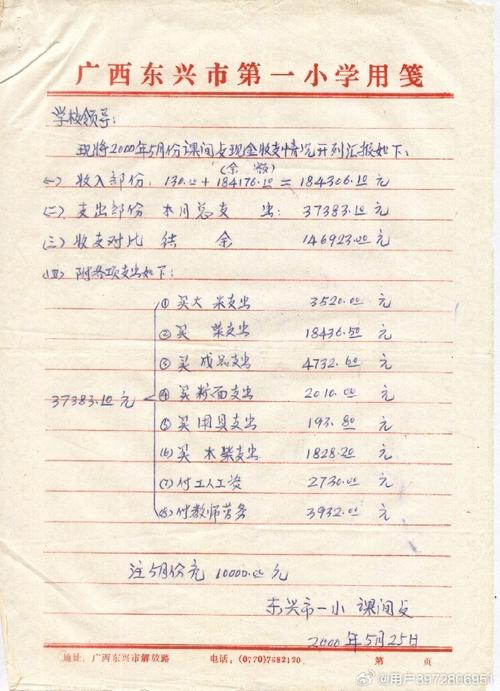 广西东兴市第一小学用笺
学校领导:
现将2000年5月份课间点现金收支情况开列汇报如下:
(余 款)
(一) 收入部份: 130.00 + 184176.10 = 184306.10 元
(二) 支出部份 本月总支 出: 37383.10 元
(三) 收支对比 结 余 146923.00 元
(四) 附各项支出如下:
① 买大米支出 3520.00 元
② 买 菜支出 18436.50 元
③ 买 成品支出 4732.60 元
37383.10 元
④ 买粉面支出 2010.00 元
⑤ 买用具支出 193.80 元
(6) 买木柴支出 1828.20 元
(7) 付工人工资 2730.00 元
(8) 付教师劳务 3932.00 元
注5月份 10000.00 元
东兴市一小 课间点
2000年5月25日
地址:广西东兴市解放路 电话:(0770)7682120 第 页
@用户3972806951